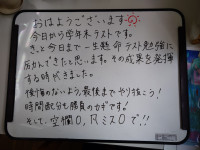 おはようございます
今日から学年末ラストです。
きっと今日まで一生懸命テスト勉強に
尽力してきたと思います。その成果を発揮
する時がきました。
後悔のないよう、最後までやり抜こう!
時間配分も勝負のカギです!
そして、空欄0、Rミス0で!!